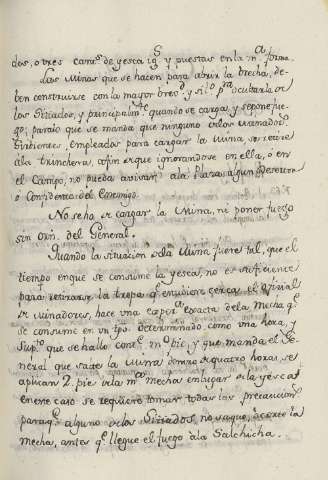 dos, o tres cant.s de yesca ig.s y puestas en la m.a forma.
Las Minas que se hacen para abrir la brecha, de-
ben construirse con la mayor brev.d y silo p.ra ocultarla a
los Sitiados, y principalm.te quando se carga, y se pone fue-
go; para lo que se manda que ninguno de los Minadores
Sirbientes, empleados para cargar la Mina, se retire
ala trinchera, afin de que ignorandose en ella, o en
el Campo, no pueda avisar ala Plaza algun Desertor
o Confidente del Enemigo.
No se ha de cargar la Mina, ni poner fuego
sin orn. del General.
Quando la situacion dela Mina fuere tal, que el
tiempo en que se consume la yesca, no es suficiente
para retirarse la tropa q.e estubiere cerca, el oficial
de Minadores, hace una exacta dela mecha q.e
se consume en un tpo. determinado, como una hora, y
sup.to que se hallo cons. m.o pie, y que manda el Ge-
neral que salte la Mina dentro de quatro horas, se
aplican 2. pies dela m.a mecha en lugar de la yesca:
en este caso se requiere tomar todas las precauciones
para q.e alguno delos Sitiados, no saque, o corte la
mecha, antes q.e llegue el fuego ala Salchicha.